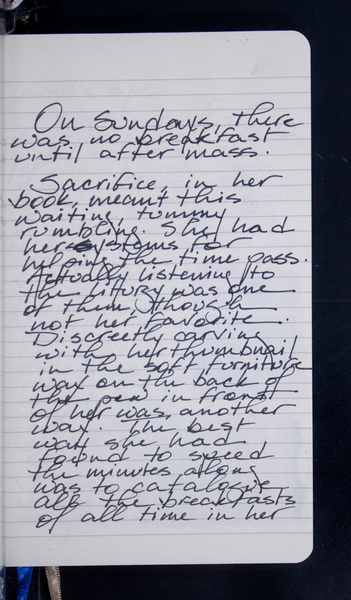 On Sundays, there
was no breakfast
until after mass.
Sacrifice, in her
book, meant this
waiting, tummy
rumbling. She had
her systems for
helping the time pass.
Actually listening to
the liturgy was one
of them, though
not her favorite.
Discreetly carving
with her thumbnail
in the soft furniture
wax on the back of
the pew in front
of her was another
way. The best
way she had
found to speed
the minutes along
was to catalogue
all the breakfasts
of all time in her